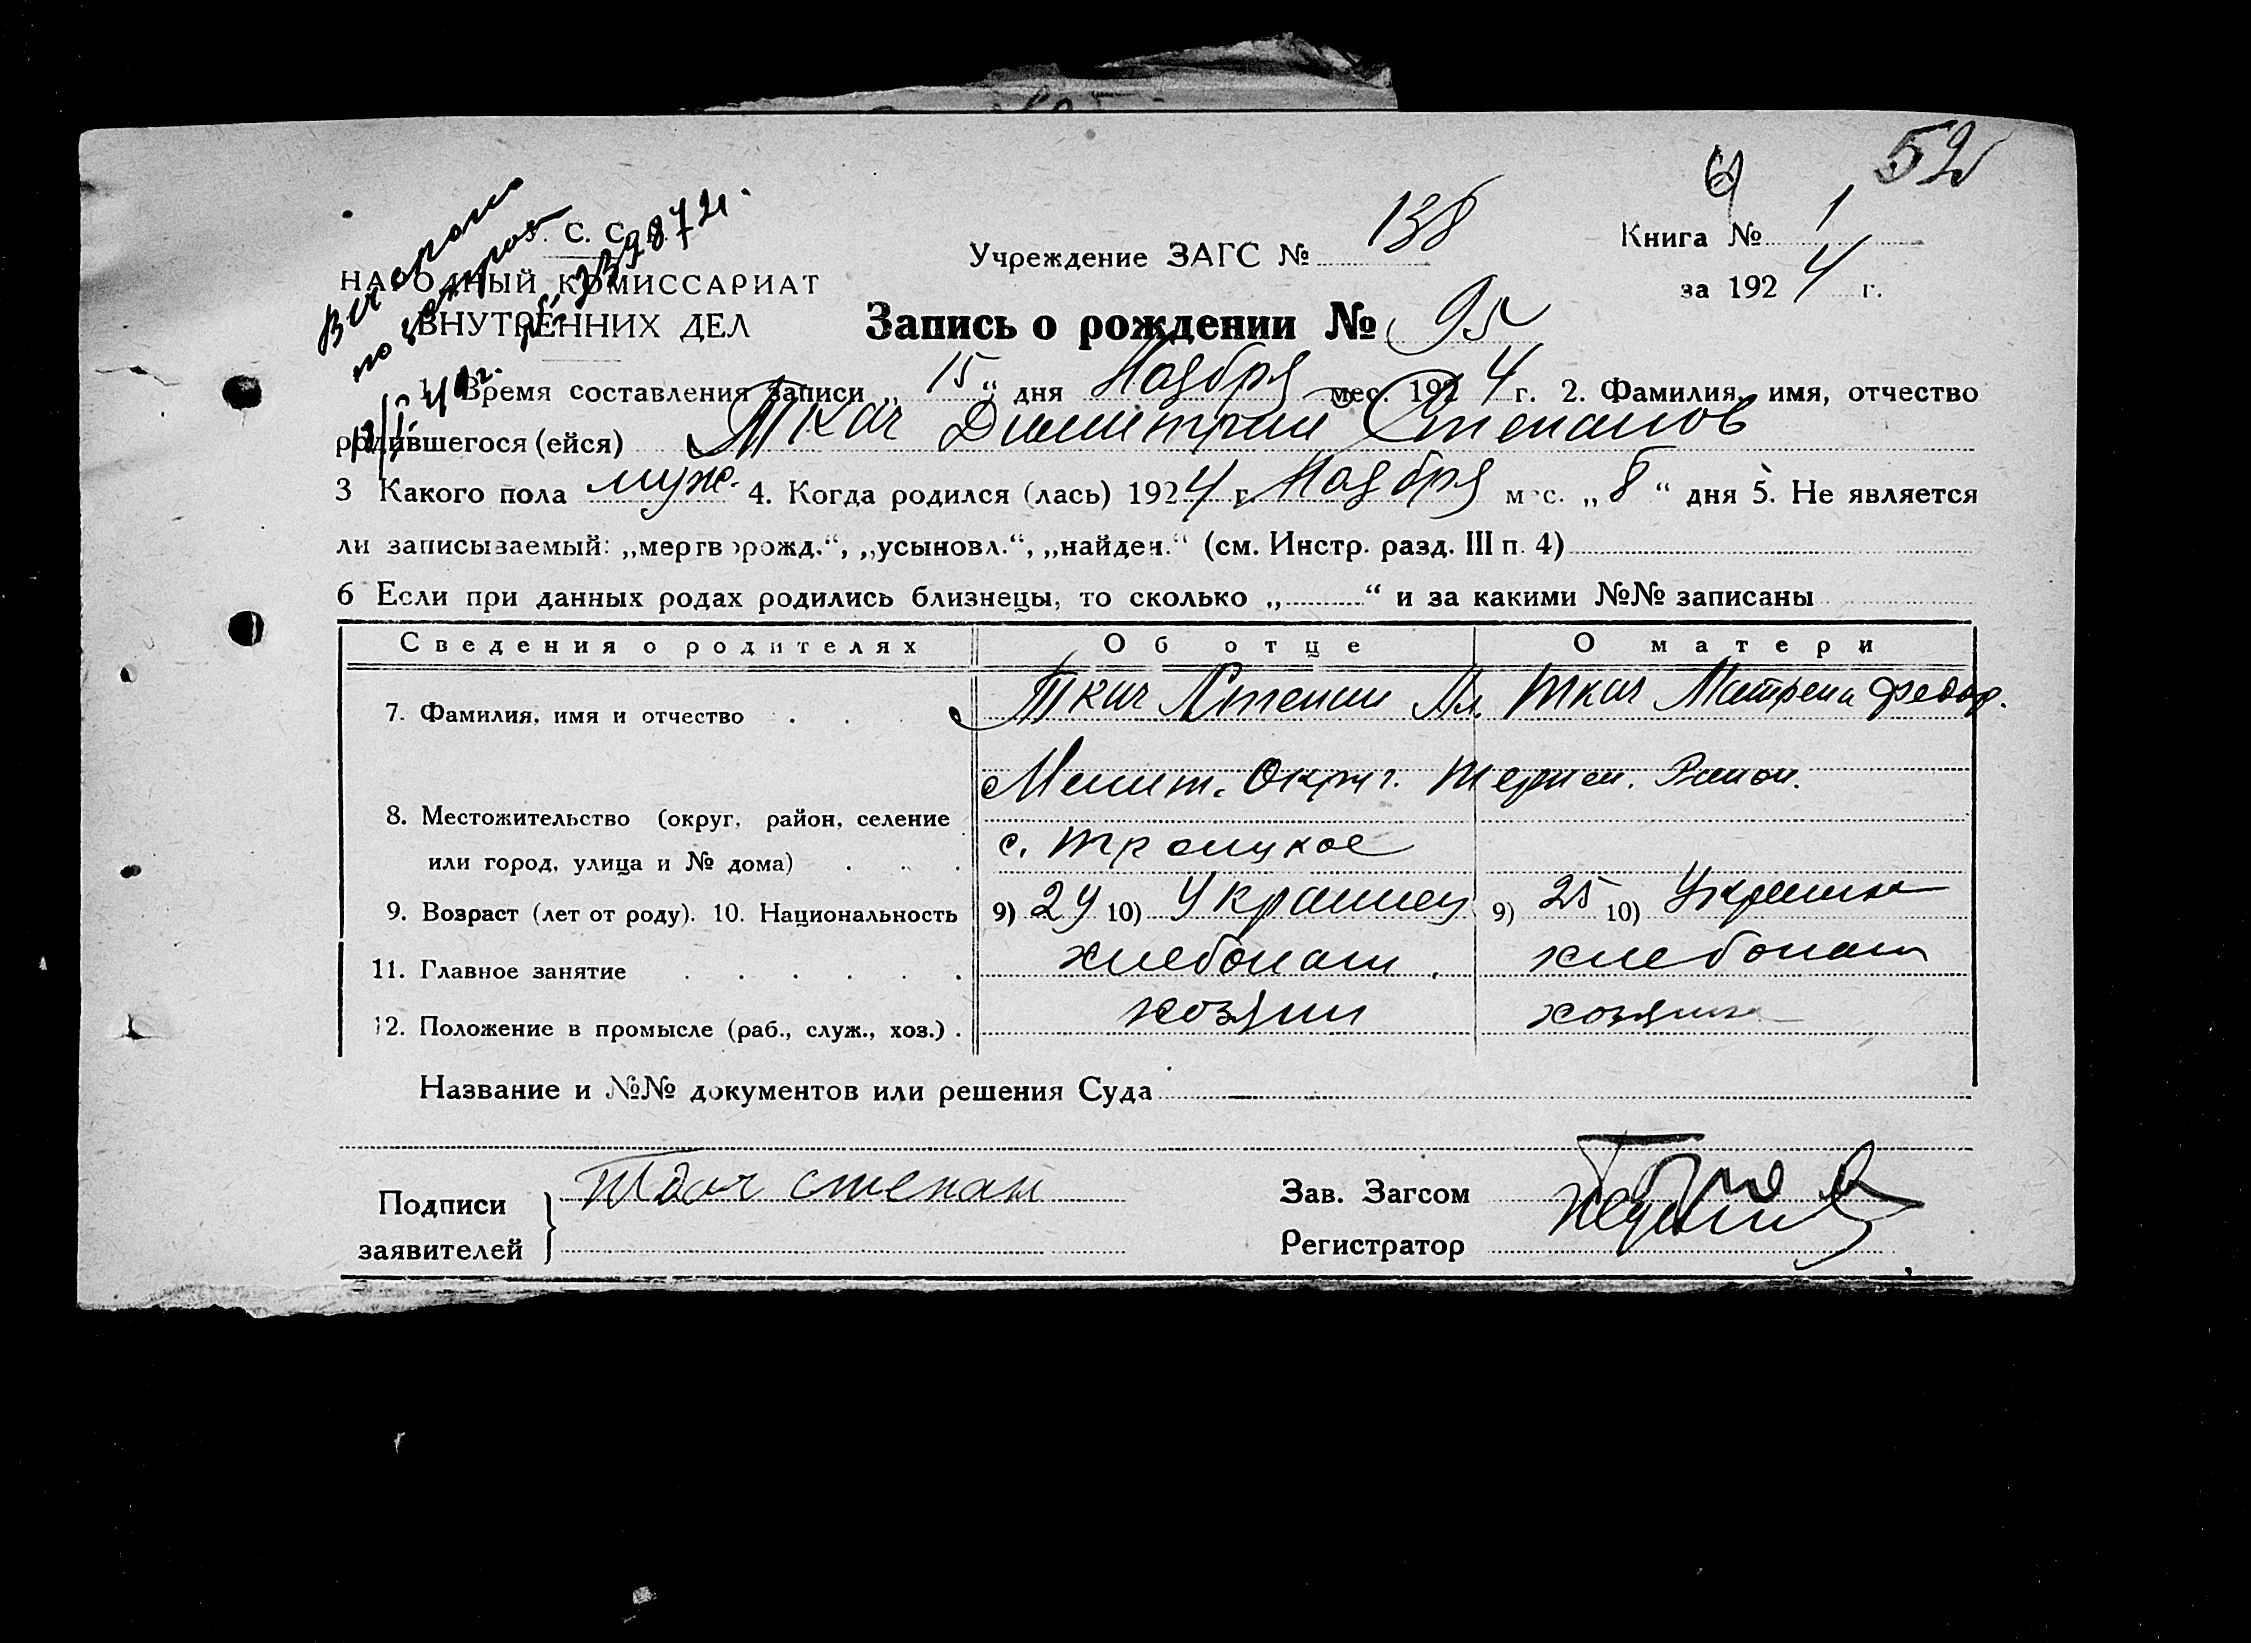 52
Книга № 1
Учреждение ЗАГС № 138
за 1924 г.
НАРОДНЫЙ КОМИССАРИАТ
ВНУТРЕННИХ ДЕЛ
Запись о рождении № 95
1. Время составления записи „ 15 “ дня Ноября мес. 1924 г. 2. Фамилия, имя, отчество
родившегося (ейся) Ткач Димитрий Степанов
3 Какого пола муж. 4. Когда родился (лась) 1924 г. Ноября мес. „ 8 “ дня 5. Не является
ли записываемый: „мертворожд.“, „усыновл.“, „найден.“ (см. Инстр. разд. III п. 4)
6 Если при данных родах родились близнецы, то сколько „ “ и за какими №№ записаны
Сведения о родителях Об отце О матери
7. Фамилия, имя и отчество Ткач Степан Ткач Матрена Федор.
Мелит. Окр.
8. Местожительство (округ, район, селение
или город, улица и № дома) с. Троицкое
9. Возраст (лет от роду). 10. Национальность 9) 24 10) Украинец 9) 25 10) Украинка
11. Главное занятие хлебопаш. хлебопаш
12. Положение в промысле (раб., служ., хоз.) хозяин хозяйка
Название и №№ документов или решения Суда —
Подписи
заявителей
Ткач степан
Зав. Загсом
Регистратор